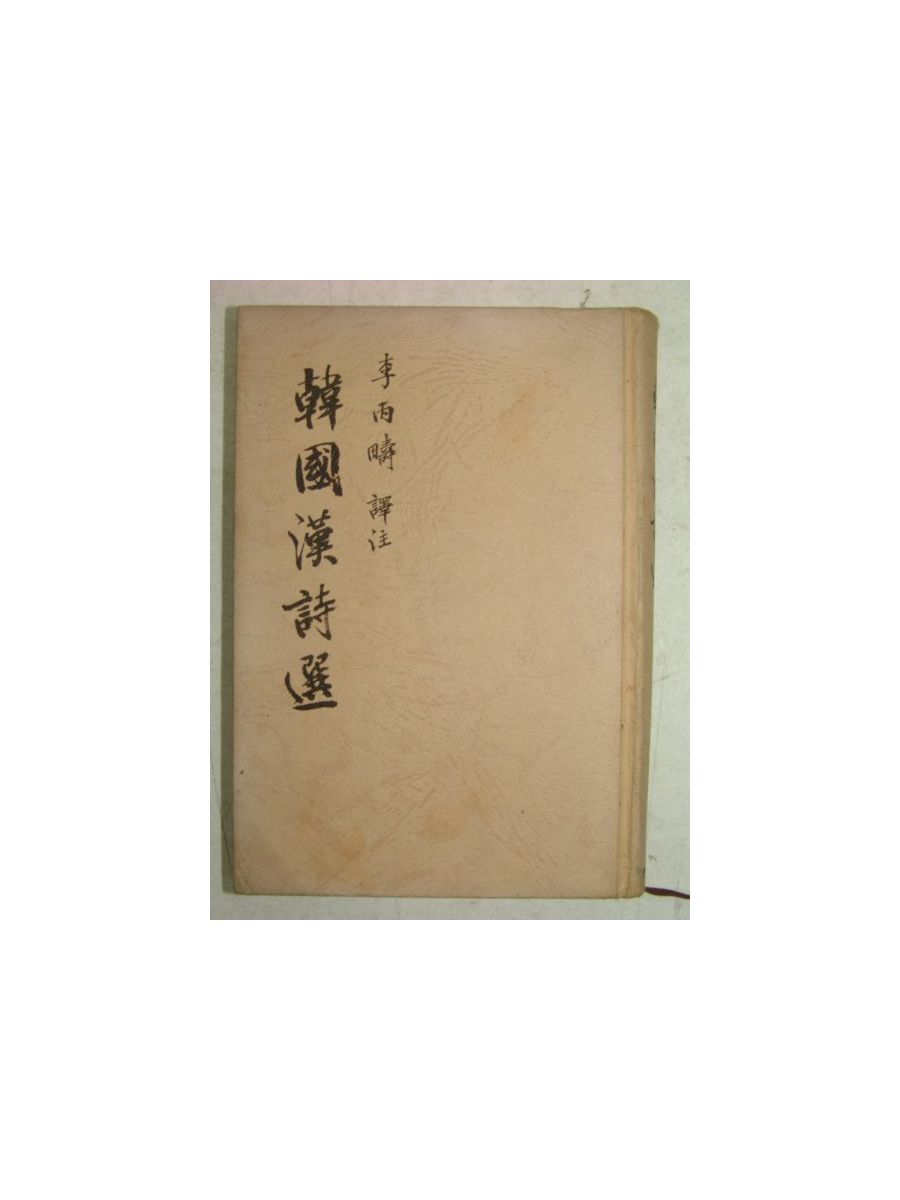 李丙疇 譯注
韓國漢詩選